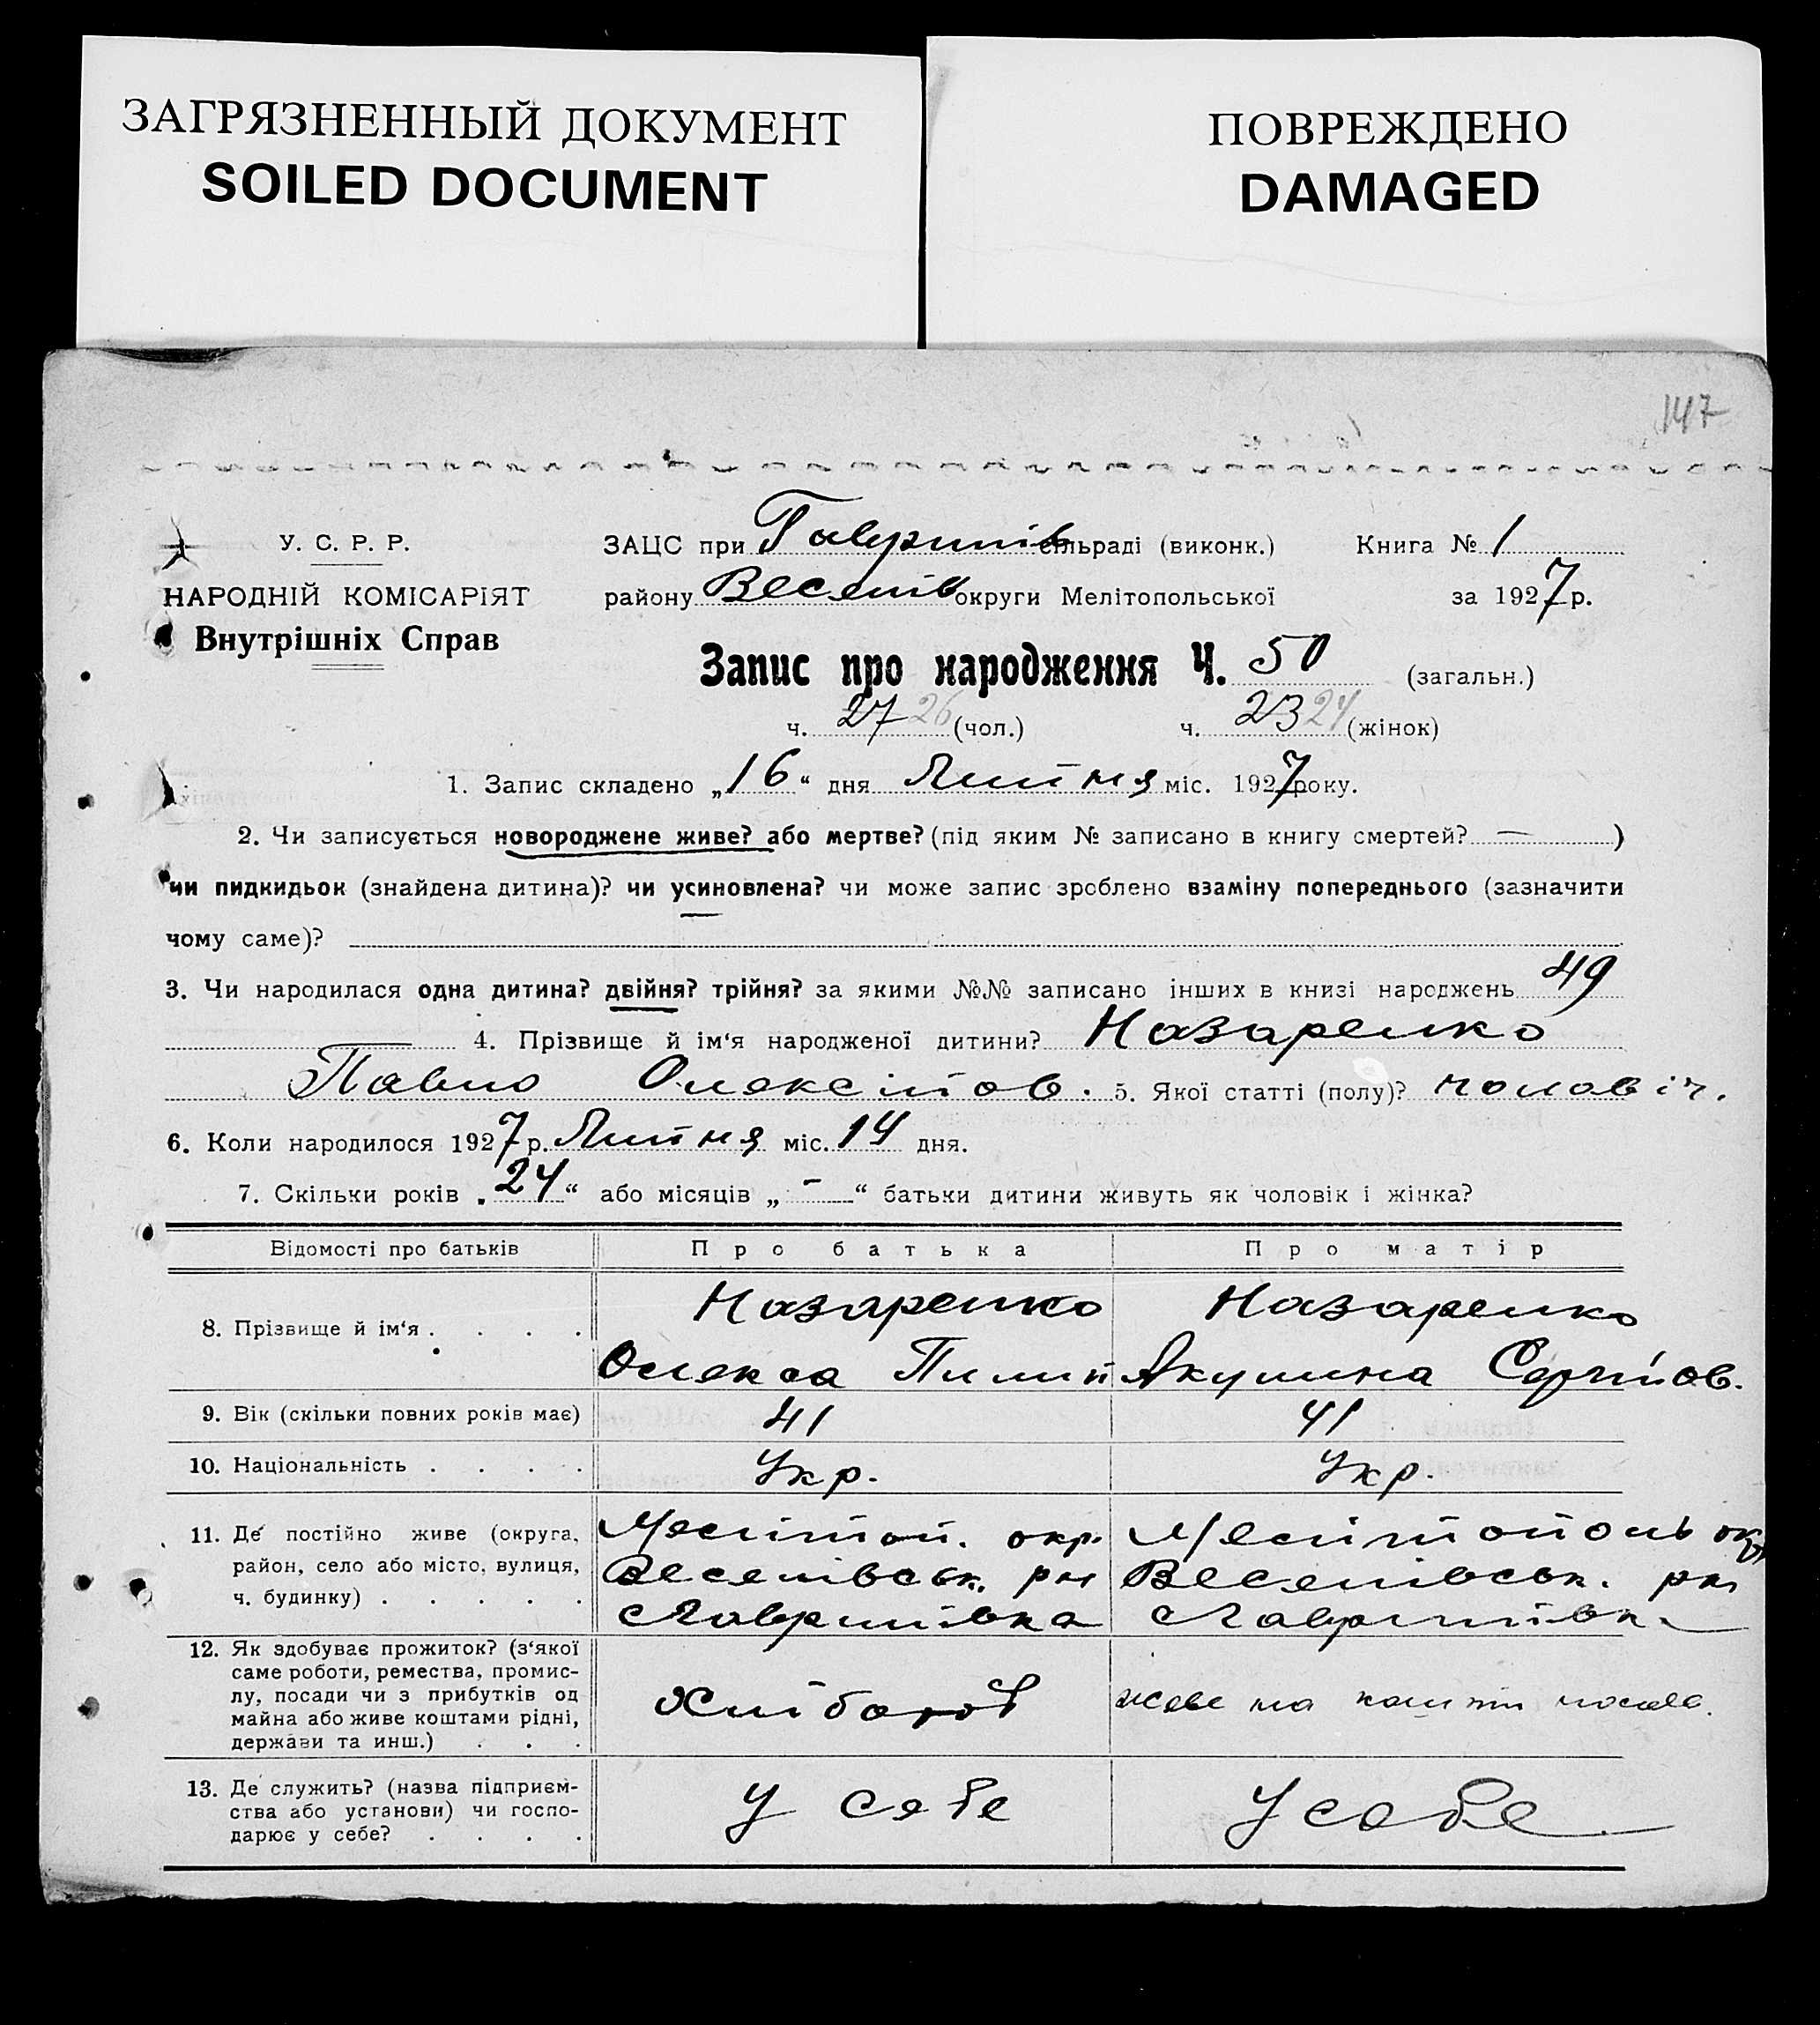 ЗАГРЯЗНЕННЫЙ ДОКУМЕНТ
SOILED DOCUMENT
ПОВРЕЖДЕНО
DAMAGED
147
У. С. Р. Р.
НАРОДНІЙ КОМІСАРІЯТ
Внутрішніх Справ
ЗАЦС при Гаврилів сільраді (виконк.) Книга № 1
району Веселів округи Мелітопольської за 1927 р.
Запис про народження Ч. 50 (загальн.)
ч. 27 26 (чол.) ч. 23 24 (жінок)
1. Запис складено „16“ дня Липня міс. 1927 року.
2. Чи записується новороджене живе? або мертве? (під яким № записано в книгу смертей? — )
чи пидкидьок (знайдена дитина)? чи усиновлена? чи може запис зроблено взаміну попереднього (зазначити
чому саме)?
3. Чи народилася одна дитина? двійня? трійня? за якими №№ записано інших в книзі народжень 49
4. Прізвище й ім‘я народженої дитини? Назаренко
Павло Олексійов. 5. Якої статті (полу)? чоловіч.
6. Коли народилося 1927 р. Липня міс. 14 дня.
7. Скільки років „24“ або місяців „ - “ батьки дитини живуть як чоловік і жінка?
Відомості про батьків Про батька Про матір
8. Прізвище й ім‘я . . . . Назаренко Назаренко
Олекса Пилип Акулина Сергійов.
9. Вік (скільки повних років має) 41 41
10. Національність . . . . Укр. Укр.
11. Де постійно живе (округа, Мелітоп. окр. Мелітополь окр
район, село або місто, вулиця, Веселівськ. рн Веселівськ. рн
ч. будинку) . . . . . Гаврилівка Гаврилівка
12. Як здобуває прожиток? (з‘якої
саме роботи, ремества, промис-
лу, посади чи з прибутків од
майна або живе коштами рідні,
держави та инш.) . . .
Хлібороб живе на кошти чолов.
13. Де служить? (назва підприєм-
ства або установи) чи госпо-
дарює у себе? . . . .
У себе У себе